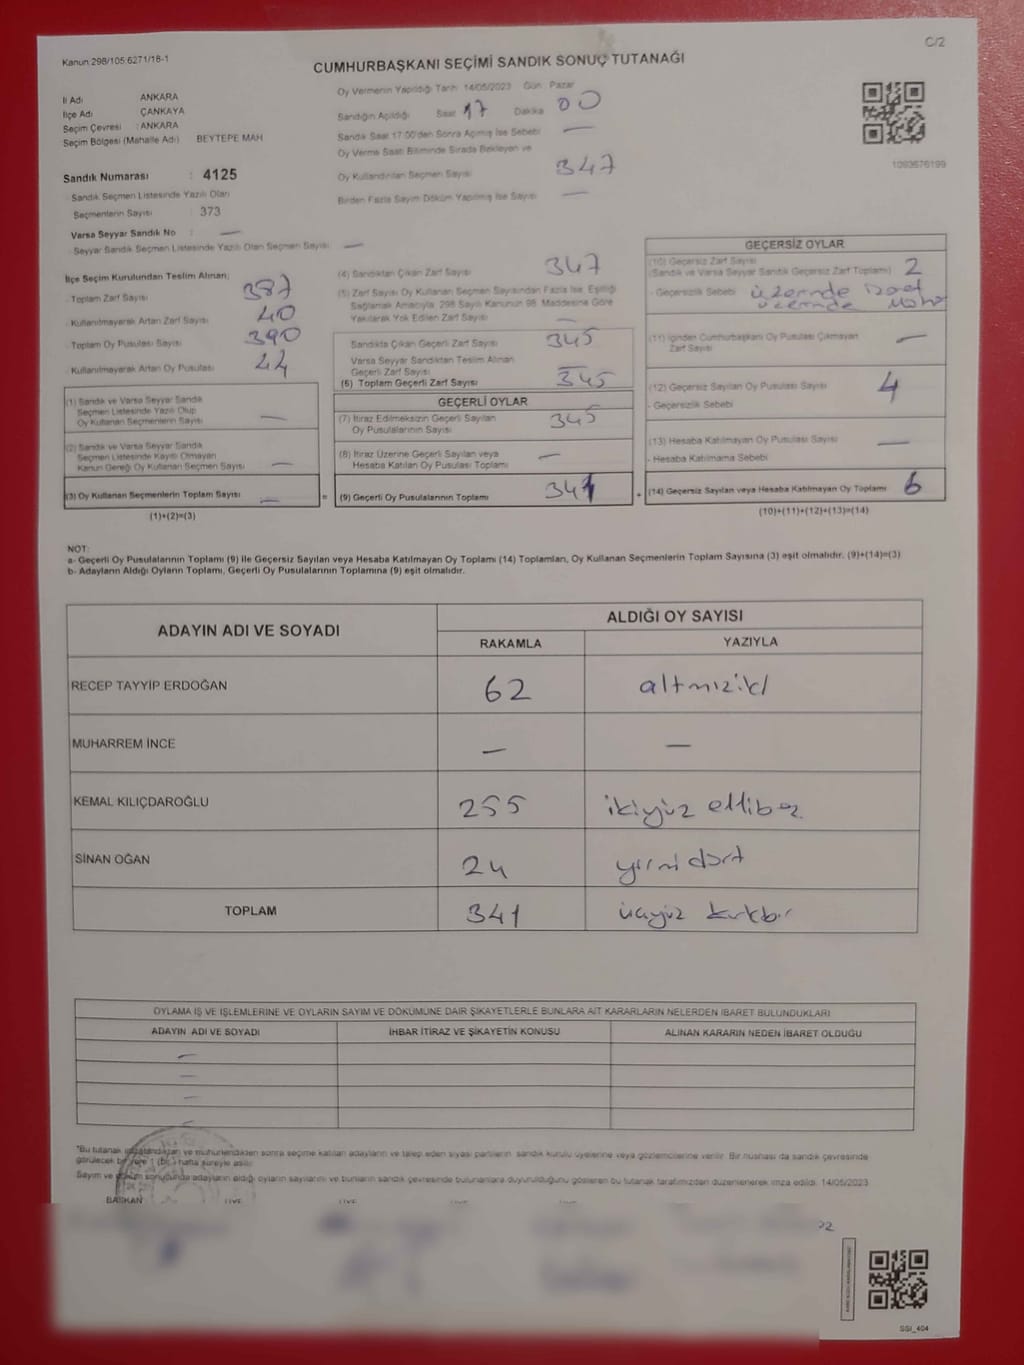 Kanun:298/105 6271/18-1
C/2
CUMHURBAŞKANI SEÇİMİ SANDIK SONUÇ TUTANAĞI
İl Adı ANKARA
İlçe Adı ÇANKAYA
Seçim Çevresi : ANKARA
Seçim Bölgesi (Mahalle Adı) BEYTEPE MAH
Sandık Numarası : 4125
Sandık Seçmen Listesinde Yazılı Olan
Seçmenlerin Sayısı : 373
Varsa Seyyar Sandık No : —
- Seyyar Sandık Seçmen Listesinde Yazılı Olan Seçmen Sayısı —
Oy Vermenin Yapıldığı Tarih: 14/05/2023 Gün: Pazar
Sandığın Açıldığı Saat 17 Dakika 00
Sandık Saat 17:00'den Sonra Açılmış İse Sebebi —
Oy Verme Saati Bitiminde Sırada Bekleyen ve
Oy Kullandırılan Seçmen Sayısı 347
Birden Fazla Sayım Döküm Yapılmış İse Sayısı —
1093676199
İlçe Seçim Kurulundan Teslim Alınan;
- Toplam Zarf Sayısı 387
- Kullanılmayarak Artan Zarf Sayısı 40
- Toplam Oy Pusulası Sayısı 390
- Kullanılmayarak Artan Oy Pusulası 44
(1) Sandık ve Varsa Seyyar Sandık
Seçmen Listesinde Yazılı Olup
Oy Kullanan Seçmenlerin Sayısı —
(2) Sandık ve Varsa Seyyar Sandık
Seçmen Listesinde Kayıtlı Olmayan
Kanun Gereği Oy Kullanan Seçmen Sayısı —
(3) Oy Kullanan Seçmenlerin Toplam Sayısı —
(1)+(2)=(3)
=
(4) Sandıktan Çıkan Zarf Sayısı 347
(5) Zarf Sayısı Oy Kullanan Seçmen Sayısından Fazla İse, Eşitliği
Sağlamak Amacıyla, 298 Sayılı Kanunun 98. Maddesine Göre
Yakılarak Yok Edilen Zarf Sayısı —
Sandıkta Çıkan Geçerli Zarf Sayısı 345
Varsa Seyyar Sandıktan Teslim Alınan
Geçerli Zarf Sayısı —
(6) Toplam Geçerli Zarf Sayısı 345
GEÇERLİ OYLAR
(7) İtiraz Edilmeksizin Geçerli Sayılan
Oy Pusulalarının Sayısı 345
(8) İtiraz Üzerine Geçerli Sayılan veya
Hesaba Katılan Oy Pusulası Toplamı —
(9) Geçerli Oy Pusulalarının Toplamı 341
+
GEÇERSİZ OYLAR
(10) Geçersiz Zarf Sayısı
(Sandık ve Varsa Seyyar Sandık Geçersiz Zarf Toplamı) 2
- Geçersizlik Sebebi üzerinde
üzerinde
(11) İçinden Cumhurbaşkanı Oy Pusulası Çıkmayan
Zarf Sayısı —
(12) Geçersiz Sayılan Oy Pusulası Sayısı 4
- Geçersizlik Sebebi
(13) Hesaba Katılmayan Oy Pusulası Sayısı —
- Hesaba Katılmama Sebebi
(14) Geçersiz Sayılan veya Hesaba Katılmayan Oy Toplamı 6
(10)+(11)+(12)+(13)=(14)
NOT:
a- Geçerli Oy Pusulalarının Toplamı (9) ile Geçersiz Sayılan veya Hesaba Katılmayan Oy Toplamı (14) Toplamları, Oy Kullanan Seçmenlerin Toplam Sayısına (3) eşit olmalıdır. (9)+(14)=(3)
b- Adayların Aldığı Oyların Toplamı, Geçerli Oy Pusulalarının Toplamına (9) eşit olmalıdır.
ADAYIN ADI VE SOYADI
ALDIĞI OY SAYISI
RAKAMLA YAZIYLA
RECEP TAYYİP ERDOĞAN 62 altmışiki
MUHARREM İNCE — —
KEMAL KILIÇDAROĞLU 255 ikiyüz ellibeş
SİNAN OĞAN 24 yirmi dört
TOPLAM 341 üçyüz kırkbir
OYLAMA İŞ VE İŞLEMLERİNE VE OYLARIN SAYIM VE DÖKÜMÜNE DAİR ŞİKAYETLERLE BUNLARA AİT KARARLARIN NELERDEN İBARET BULUNDUKLARI
ADAYIN ADI VE SOYADI İHBAR İTİRAZ VE ŞİKAYETİN KONUSU ALINAN KARARIN NEDEN İBARET OLDUĞU
—
—
—
—
"Bu tutanak imzalandıktan ve mühürlendikten sonra seçime katılan adayların ve talep eden siyasi partilerin sandık kurulu üyelerine veya gözlemcilerine verilir. Bir nüshası da sandık çevresinde
görülecek bir yere 1 (bir) hafta süreyle asılır.
Sayım ve döküm sonucunda adayların aldığı oyların sayılarını ve bunların sandık çevresinde bulunanlara duyurulduğunu gösteren bu tutanak tarafımızdan düzenlenerek imza edildi. 14/05/2023
BAŞKAN ÜYE ÜYE
SSI_404